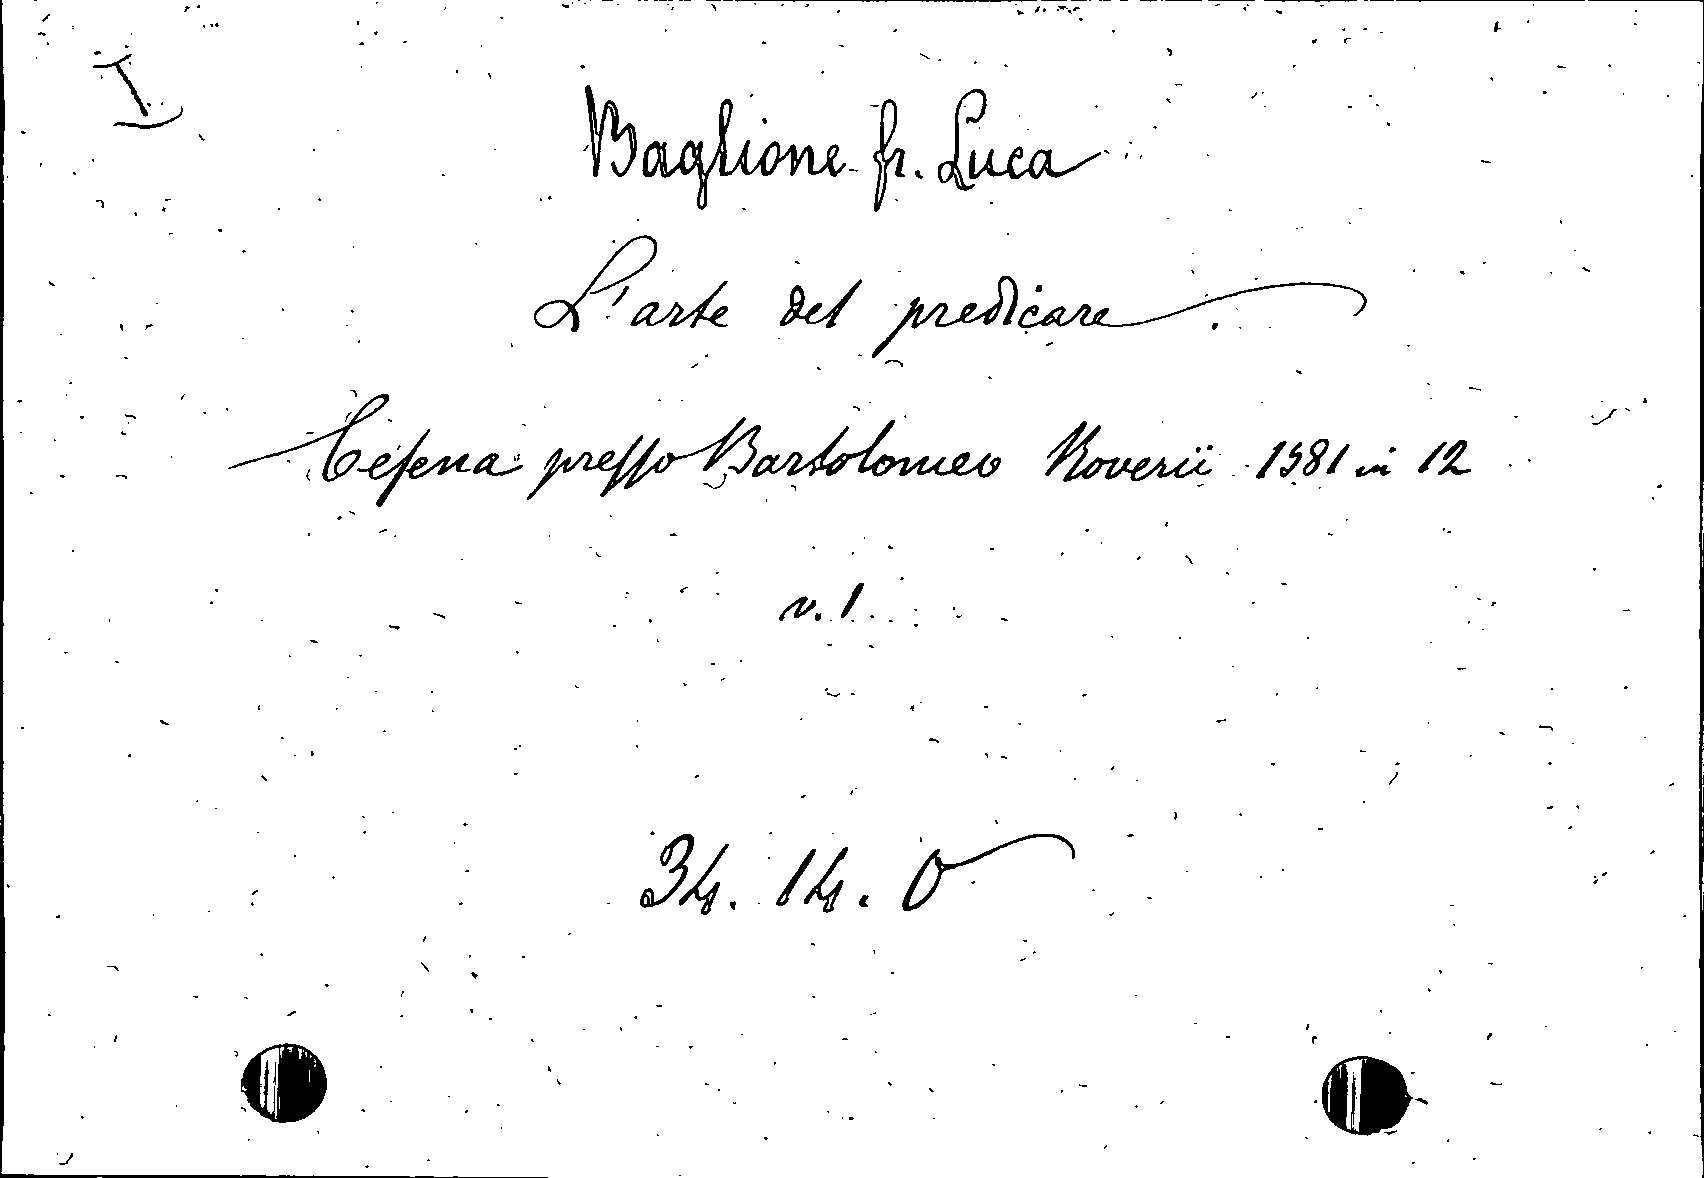 I
Baglione fr. Luca
L'arte del predicare
Cesena presso Bartolomeo Roverii 1581 in 12
v. 1
34. 14. O